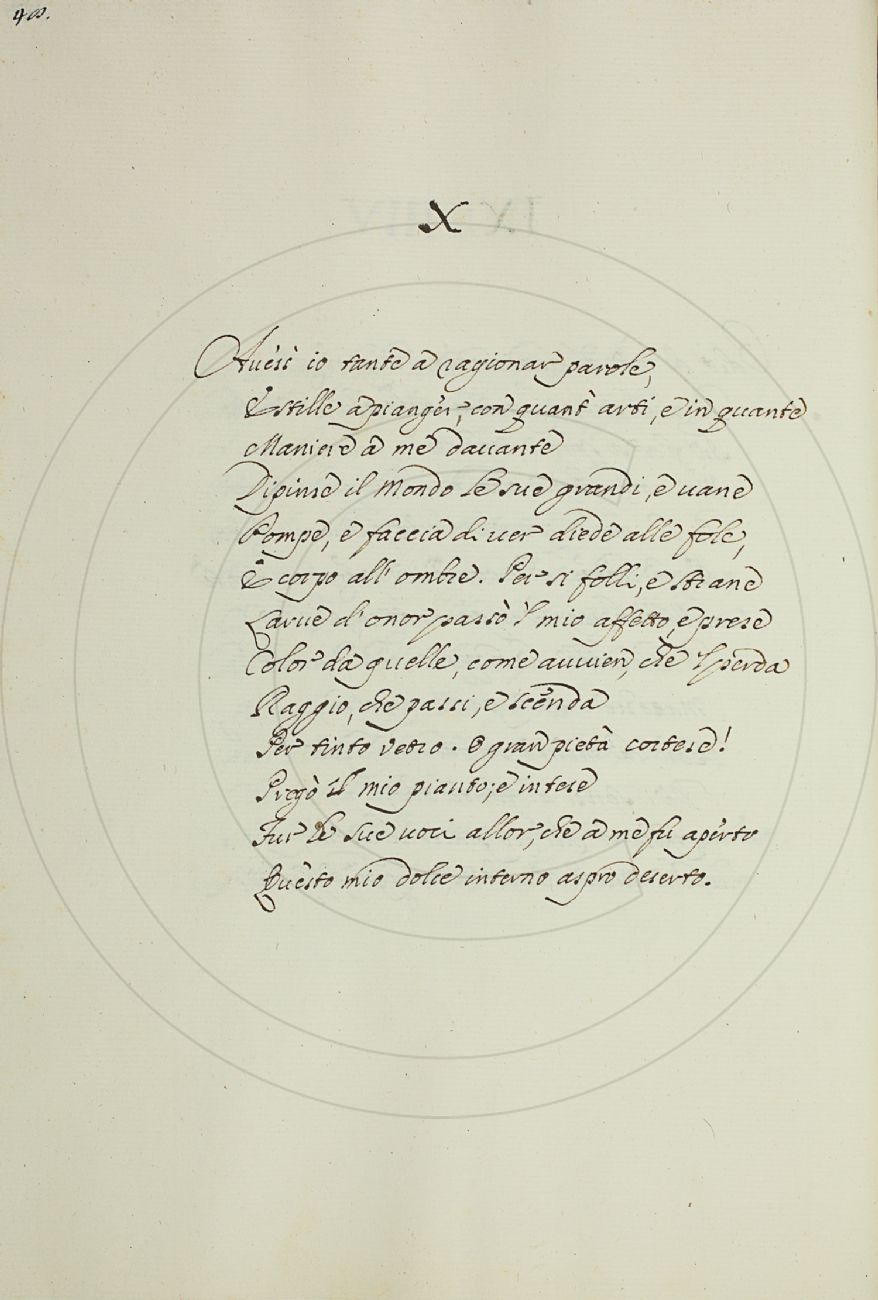 48.
X
Avèsi io tante à ragionar parole,
È stille à pianger, con quant' arti, e in quante
Maniere à me davante
Dipinse il Mondo le sue grandi, e vane
Pompe, e faccia di ver diede alle fole,
È corpo all' ombre. Per si folli, e strane
Larve d' onor passò 'l mio affetto, e prese
Color da quelle, come avvien, che 'l prenda
Raggio, che passi, e scenda
Per tinto vetro. O gran pietà cortese!
Pregò il mio pianto; e intese
Fur le sue voci allor, che à me fu apèrto
Quèsto mio dolce interno aspro deserto.